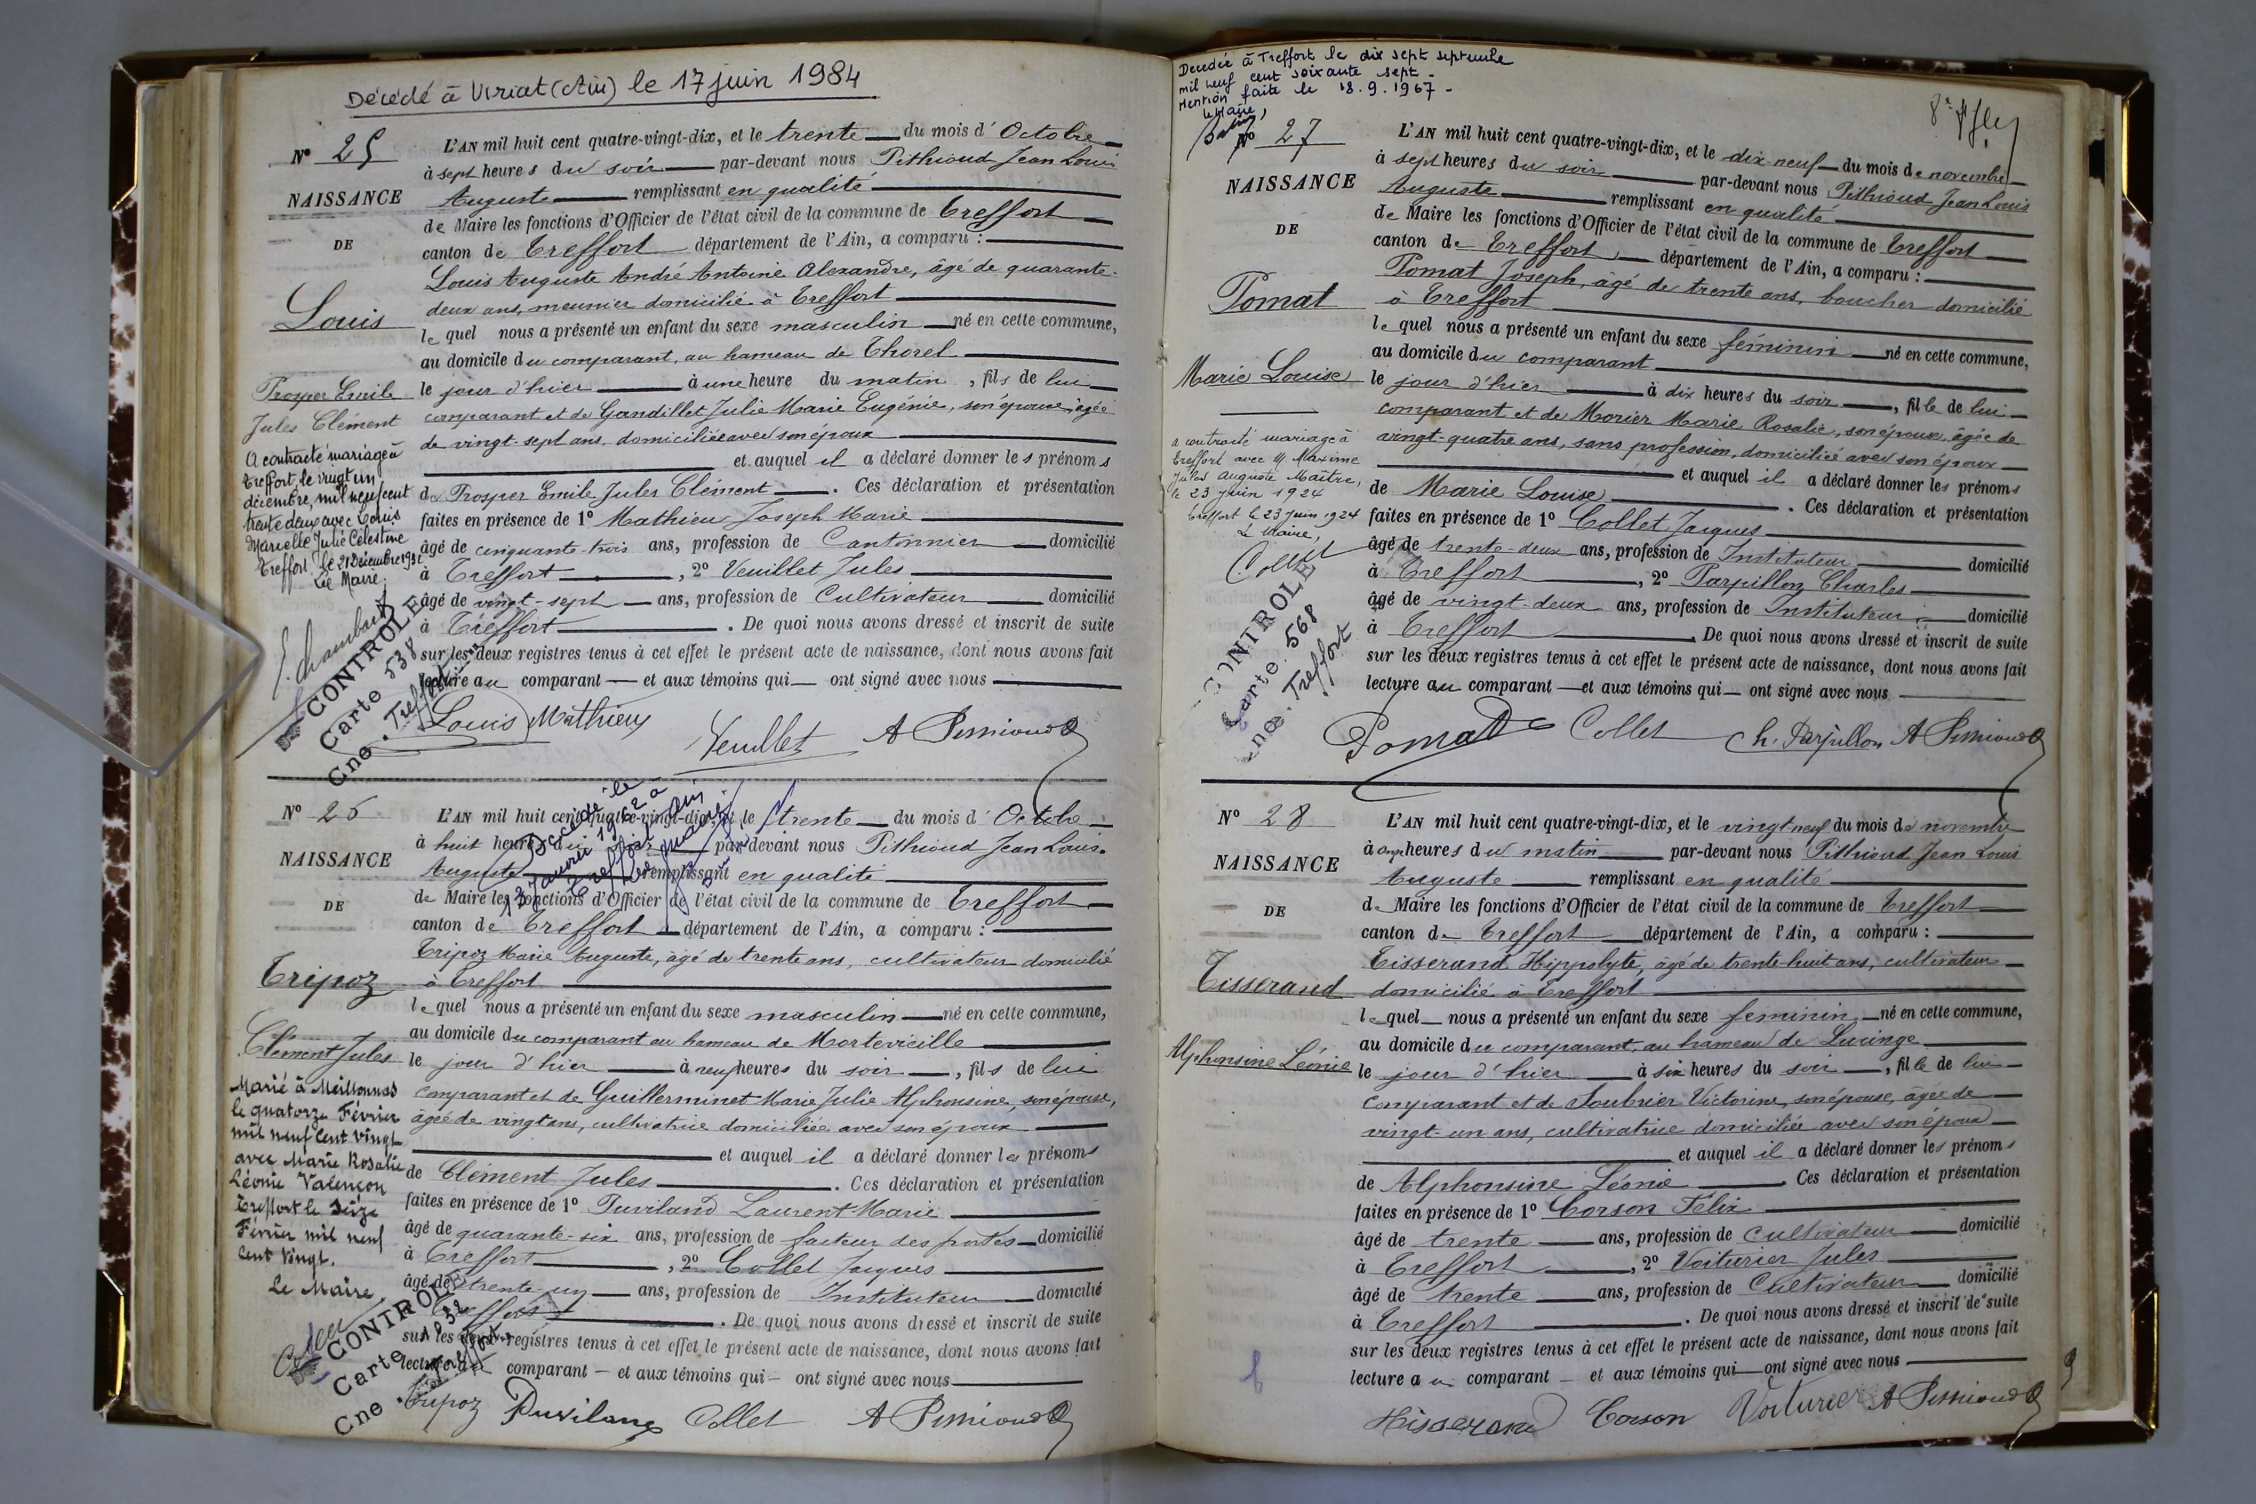 Décédé à Viriat (Ain) le 17 juin 1984
N° 25
NAISSANCE
DE
Louis
Prosper Emile
Jules Clément
A contracté mariage à
Treffort, le vingt un
décembre, mil neuf cent
trente deux avec Louis
Marcelle Julie Célestine
Treffort le 21 Décembre 1932
Le Maire,
CONTROLE
Carte 538
Cne. Treffort
L'AN mil huit cent quatre-vingt-dix, et le trente du mois d'Octobre
à sept heures du soir par-devant nous Pithioud Jean Louis
Auguste remplissant en qualité
de Maire les fonctions d'Officier de l'état civil de la commune de Treffort
canton de Treffort département de l'Ain, a comparu :
Louis Auguste André Antoine Alexandre, âgé de quarante-
deux ans, meunier domicilié à Treffort
lequel nous a présenté un enfant du sexe masculin né en cette commune,
au domicile du comparant, au hameau de Thorel
le jour d'hier à une heure du matin, fils de lui
comparant et de Gandillet Julie Marie Eugénie, son épouse, âgée
de vingt-sept ans, domiciliée avec son époux
et auquel il a déclaré donner les prénoms
de Prosper Emile Jules Clément. Ces déclaration et présentation
faites en présence de 1° Mathieu Joseph Marie
âgé de cinquante-trois ans, profession de Cantonnier domicilié
à Treffort, 2° Veuillet Jules
âgé de vingt-sept ans, profession de Cultivateur domicilié
à Treffort. De quoi nous avons dressé et inscrit de suite
sur les deux registres tenus à cet effet le présent acte de naissance, dont nous avons fait
lecture au comparant et aux témoins qui ont signé avec nous
Louis Mathieu Veuillet A Pithioud
N° 26
NAISSANCE
DE
Tripoz
Clément Jules
Marié à Meillonnas
le quatorze Février
mil neuf cent vingt
avec Marie Rosalie
Léonie Valençon
Treffort le seize
Février mil neuf
cent vingt.
Le Maire,
Collet
CONTROLE
Carte 1832
Cne. Treffort
Décédé le
13 Janvier 1962 à
Treffort Ain
Le Maire
L'AN mil huit cent quatre-vingt-dix, et le trente du mois d'Octobre
à huit heures du soir par-devant nous Pithioud Jean Louis
Auguste remplissant en qualité
de Maire les fonctions d'Officier de l'état civil de la commune de Treffort
canton de Treffort département de l'Ain, a comparu :
Tripoz Marie Auguste, âgé de trente ans, cultivateur domicilié
à Treffort
lequel nous a présenté un enfant du sexe masculin né en cette commune,
au domicile du comparant au hameau de Mortevieille
le jour d'hier à neuf heures du soir, fils de lui
comparant et de Guillerminet Marie Julie Alphonsine, son épouse,
âgée de vingt ans, cultivatrice domiciliée avec son époux
et auquel il a déclaré donner les prénoms
de Clément Jules. Ces déclaration et présentation
faites en présence de 1° Puviland Laurent-Marie
âgé de quarante-six ans, profession de facteur des postes domicilié
à Treffort, 2° Collet Jacques
âgé de trente-un ans, profession de Instituteur domicilié
à Treffort. De quoi nous avons dressé et inscrit de suite
sur les deux registres tenus à cet effet le présent acte de naissance, dont nous avons fait
lecture au comparant et aux témoins qui ont signé avec nous
Tripoz Puviland Collet A Pithioud
Décédée à Treffort le dix sept septembre
mil neuf cent soixante sept.
Mention faite le 18.9.1967.
Le Maire,
N° 27
NAISSANCE
DE
Pomat
Marie Louise
a contracté mariage à
Treffort avec M Maxime
Jules Auguste Maître,
le 23 Juin 1924
Treffort le 23 Juin 1924
Le Maire,
Collet
CONTROLE
Carte. 568
Cne. Treffort
L'AN mil huit cent quatre-vingt-dix, et le dix-neuf du mois de novembre
à sept heures du soir par-devant nous Pithioud Jean Louis
Auguste remplissant en qualité
de Maire les fonctions d'Officier de l'état civil de la commune de Treffort
canton de Treffort département de l'Ain, a comparu :
Pomat Joseph, âgé de trente ans, boucher domicilié
à Treffort
lequel nous a présenté un enfant du sexe féminin né en cette commune,
au domicile du comparant
le jour d'hier à dix heures du soir, fille de lui
comparant et de Morier Marie Rosalie, son épouse, âgée de
vingt-quatre ans, sans profession, domiciliée avec son époux
et auquel il a déclaré donner les prénoms
de Marie Louise. Ces déclaration et présentation
faites en présence de 1° Collet Jacques
âgé de trente-deux ans, profession de Instituteur domicilié
à Treffort, 2° Parpillon Charles
âgé de vingt-deux ans, profession de Instituteur domicilié
à Treffort. De quoi nous avons dressé et inscrit de suite
sur les deux registres tenus à cet effet le présent acte de naissance, dont nous avons fait
lecture au comparant et aux témoins qui ont signé avec nous
Pomat Collet Ch. Parpillon A Pithioud
N° 28
NAISSANCE
DE
Tisserand
Alphonsine Léonie
L'AN mil huit cent quatre-vingt-dix, et le vingt neuf du mois de novembre
à onze heures du matin par-devant nous Pithioud Jean Louis
Auguste remplissant en qualité
de Maire les fonctions d'Officier de l'état civil de la commune de Treffort
canton de Treffort département de l'Ain, a comparu :
Tisserand Hippolyte, âgé de trente-huit ans, cultivateur
domicilié à Treffort
lequel nous a présenté un enfant du sexe féminin né en cette commune,
au domicile du comparant, au hameau de Lucinge
le jour d'hier à six heures du soir, fille de lui
comparant et de Soubrier Victorine, son épouse, âgée de
vingt-un ans, cultivatrice domiciliée avec son époux
et auquel il a déclaré donner les prénoms
de Alphonsine Léonie. Ces déclaration et présentation
faites en présence de 1° Corson Félix
âgé de trente ans, profession de Cultivateur domicilié
à Treffort, 2° Voiturier Jules
âgé de trente ans, profession de Cultivateur domicilié
à Treffort. De quoi nous avons dressé et inscrit de suite
sur les deux registres tenus à cet effet le présent acte de naissance, dont nous avons fait
lecture au comparant et aux témoins qui ont signé avec nous
Hisserand Corson Voiturier A Pithioud
9